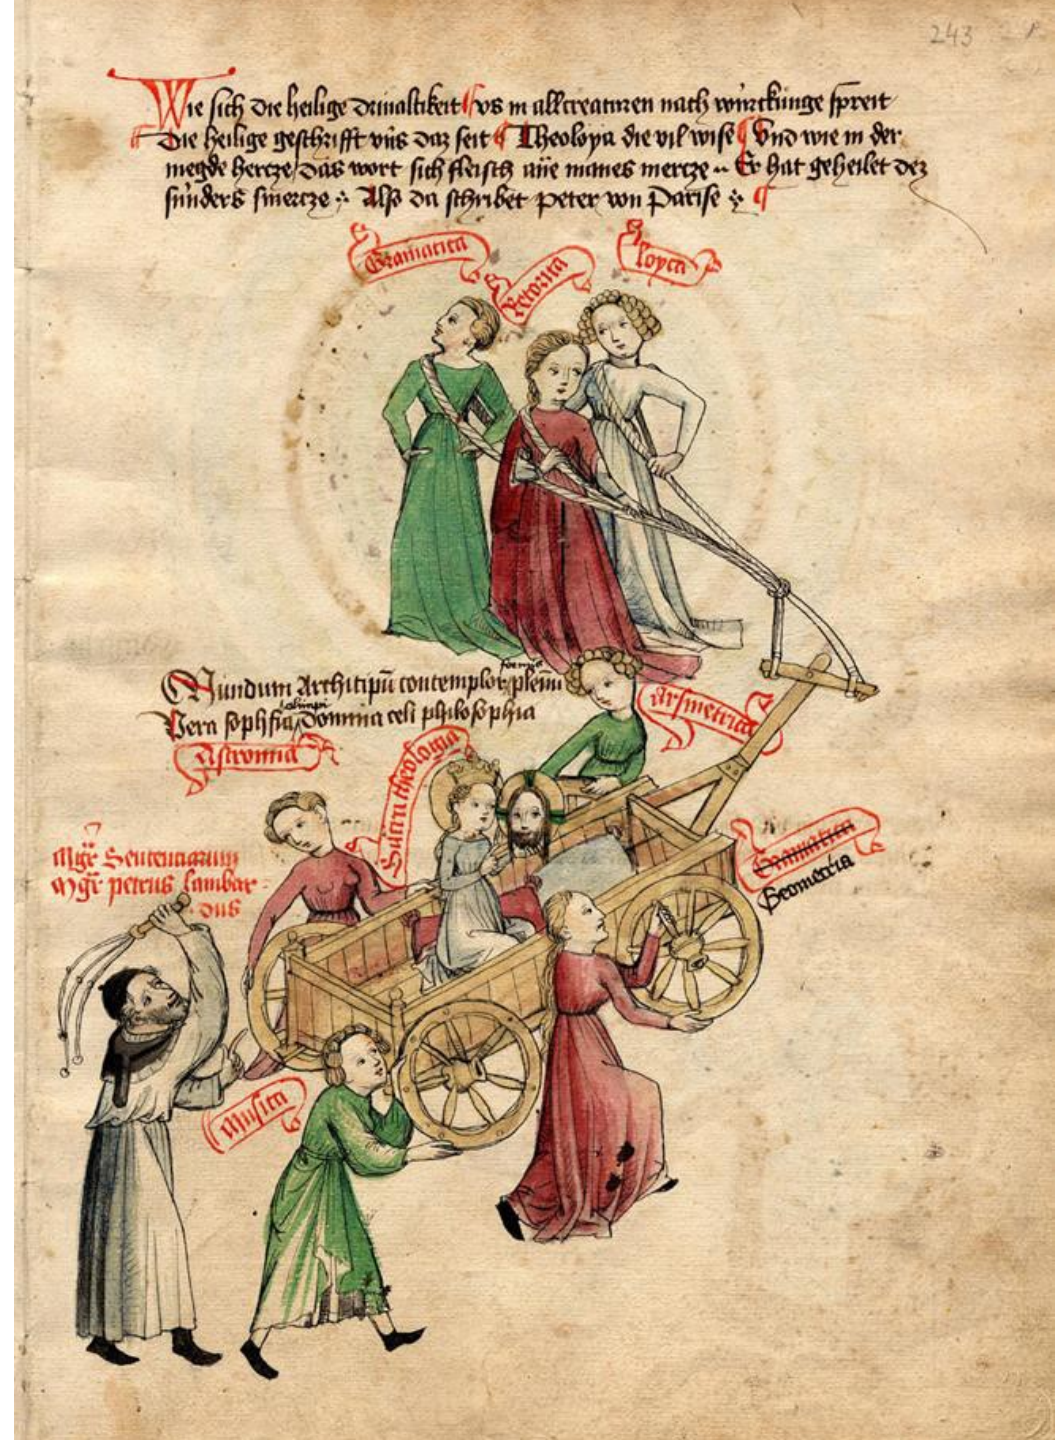 243
Wie sich die heilige driualtikeit vs in all creaturen nach würckunge spreit
Die heilige geschrifft vns daz seit Theoloya die vil wise Vnd wie in der
megde hercze das wort sich fleisch ane manes mercze Er hat geheilet dez
sünders smercze Also da schribet peter von Parise
Gramatica
Retorica
loyca
Mundum Architipū contemplor formis plenū
Vera sophsia olimpi Domina celi philosophia
Arsmetrica
Astronomia
Sacra theologia
Gramatica
Geometria
Mgr Sententiarum
Mgr petrus lambar
dus
Musica